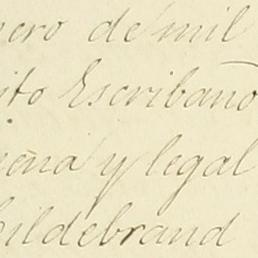 nero de mil
ito Escribano
iena y legal
hildebrand